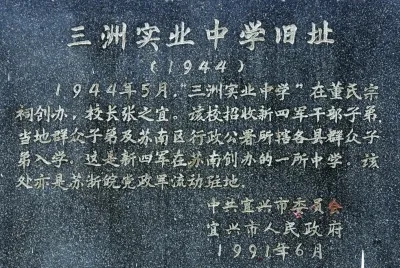 三洲实业中学旧址
(1944)
1944年5月,"三洲实业中学"在董氏宗
祠创办,校长张之宜。该校招收新四军干部子弟,
当地群众子弟及苏南区行政公署所辖各县群众子
弟入学,这是新四军在苏南创办的一所中学,该
处亦是苏浙皖党政军流动驻地。
中共宜兴市委员会
宜兴市人民政府
1991年6月